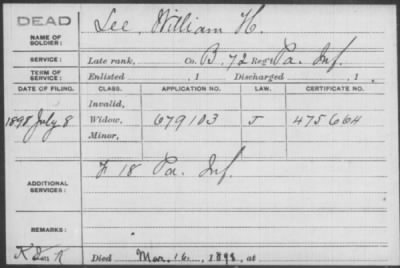 DEAD
NAME OF SOLDIER: Lee, William H.
SERVICE: Late rank, Co. B, 72 Reg't Pa. Inf.
TERM OF SERVICE: Enlisted , 1 Discharged , 1
DATE OF FILING. CLASS. APPLICATION NO. LAW. CERTIFICATE NO.
Invalid,
1898 July 8 Widow, 679103 J 475664
Minor,
ADDITIONAL SERVICES: F 18 Pa. Inf.
REMARKS:
Died Mar. 16, 1898, at